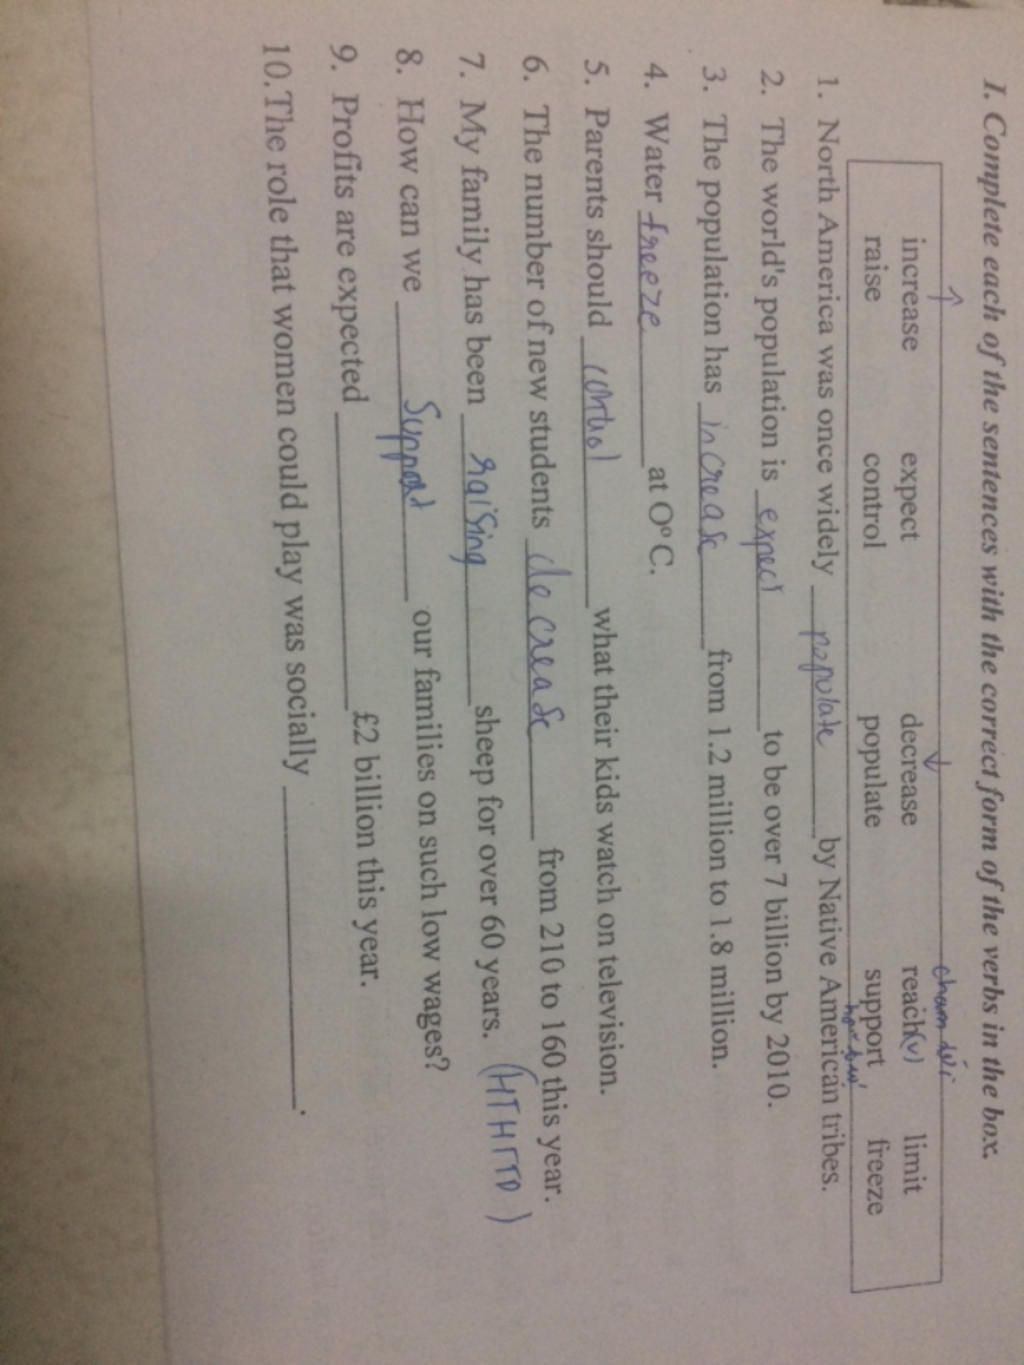 I. Complete each of the sentences with the correct form of the verbs in the box.
chạm tới
increase expect decrease reach(v) limit
raise control populate support freeze
1. North America was once widely populate by Native American tribes.
2. The world's population is expect to be over 7 billion by 2010.
3. The population has increase from 1.2 million to 1.8 million.
4. Water freeze at 0°C.
5. Parents should control what their kids watch on television.
6. The number of new students decrease from 210 to 160 this year.
7. My family has been raising sheep for over 60 years. (HTHTTD)
8. How can we support our families on such low wages?
9. Profits are expected ____ £2 billion this year.
10. The role that women could play was socially ____.